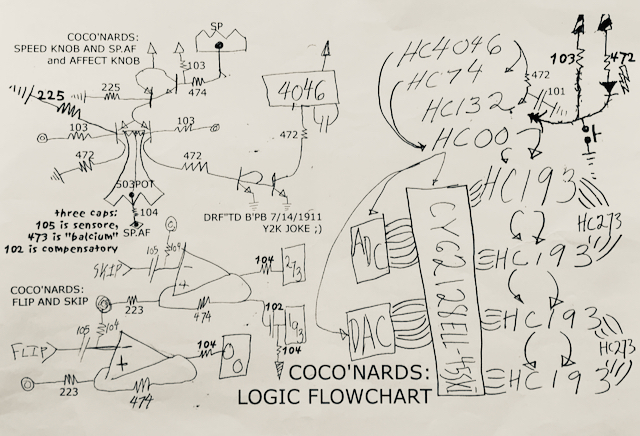 COCO'NARDS:
SPEED KNOB AND SP.AF
and AFFECT KNOB
SP
103
474
225
225
103
103
472
472
503POT
104
SP.AF
three caps:
105 is sensore,
473 is "balcium"
102 is compensatory
4046
472
DRF"TD B'PB 7/14/1911
Y2K JOKE ;)
HC4046
HC74
HC132
HC00
472
101
103
472
HC193
HC273
HC193
HC193
HC273
HC193
ADC
DAC
COCO'NARDS:
FLIP AND SKIP
SKIP
105
104
104
273
223
474
102
193
104
FLIP
105
104
104
223
474
COCO'NARDS:
LOGIC FLOWCHART